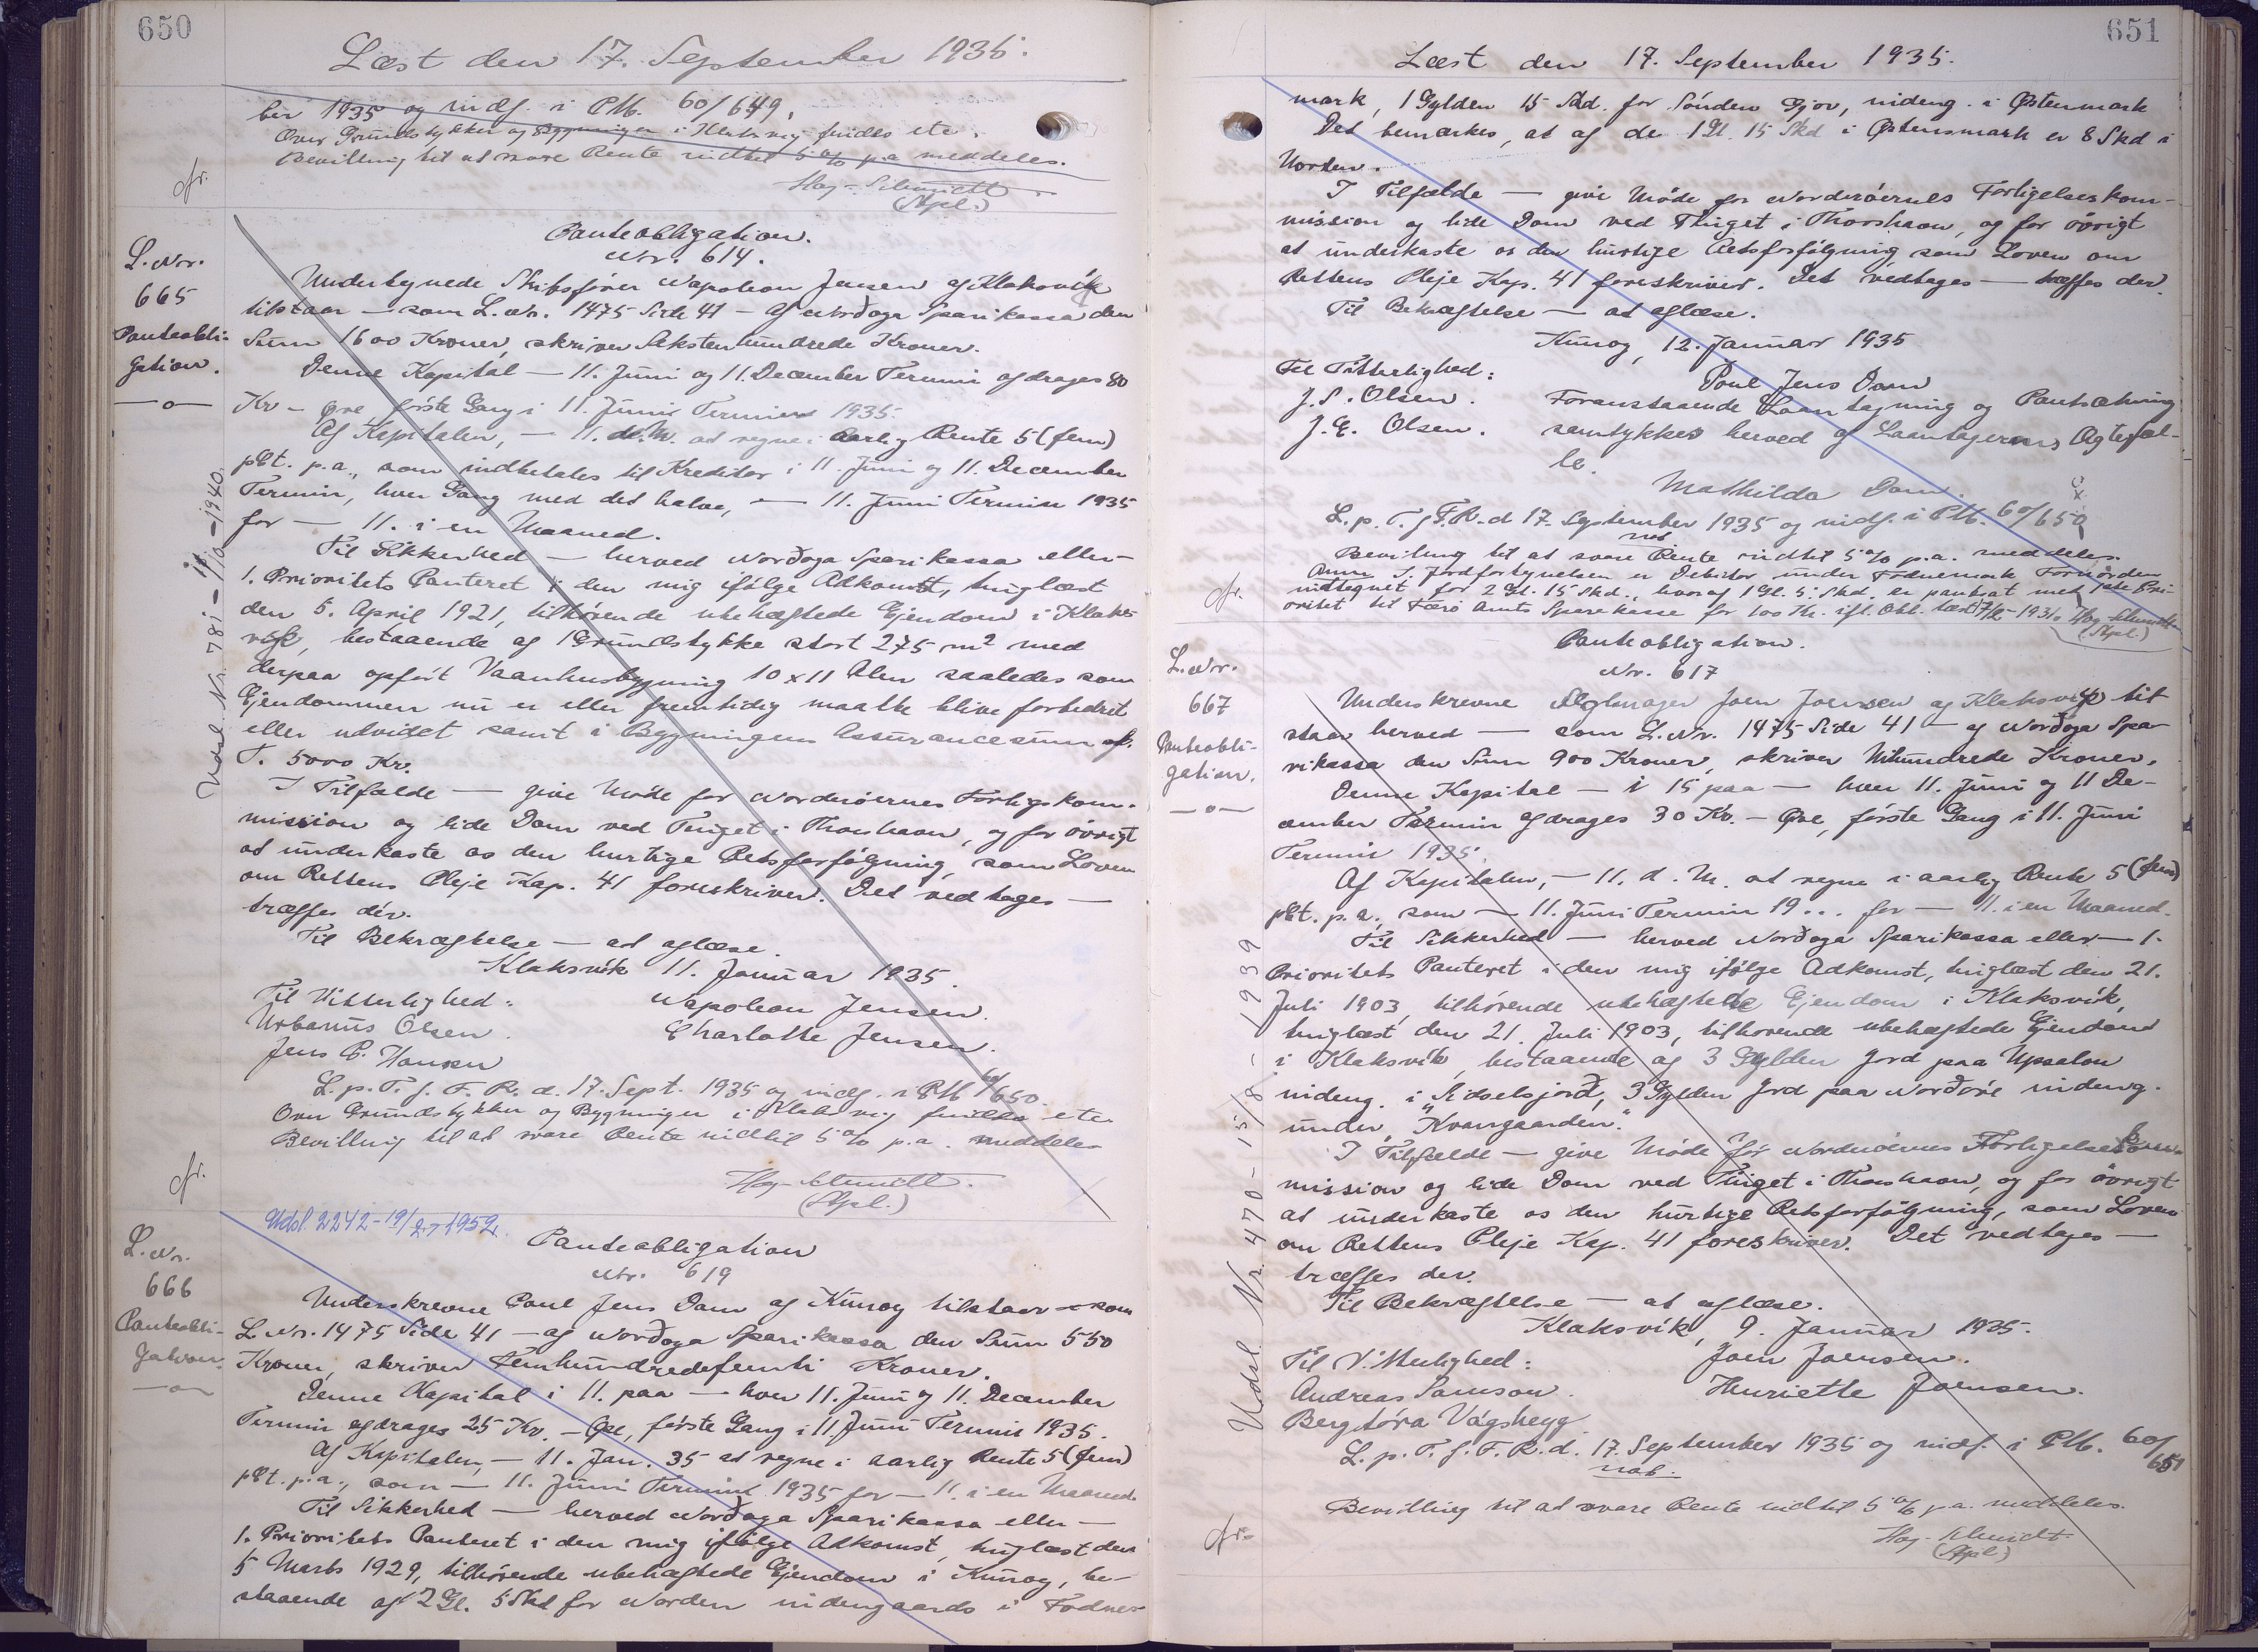 650
Læst den 17. September 1935.
ber 1935 og indf. i PMb. 60/649.
Over Grundstykker og Bygninger i Klaksvig findes ete.
Bevilling til at svare Rente indtil 5 % p.a meddeles.
Høg-Schmidt
(Stpl.)
L. Nr.
665
Panteobli-
gation.
—o—
Udsl. Nr. 781 - 11/10 - 1940.
Panteobligation.
Nr. 614.
Undertegnede Skibsfører Napoleon Jensen af Klaksvik
tilstaar — som L. Nr. 1475 Side 41 — af Norðoya Sparikassa den
Sum 1600 Kroner, skriver Sekstenhundrede Kroner.
Denne Kapital — 11. Juni og 11. December Termin afdrages 80
Kr — Øre, første Gang i 11. Juni Termin 1935.
Af Kapitalen, — 11. d. M. at regne i aarlig Rente 5 (fem)
pCt. p.a., som indbetales til Kreditor i 11. Juni og 11. December
Termin, hver Gang med det halve, — 11. Juni Termin 1935
for — 11. i en Maaned.
Til Sikkerhed — herved Norðoya Sparikassa eller —
1. Prioritets Panteret i den mig ifølge Adkomst, tinglæst
den 5. April 1921, tilhørende ubehæftede Ejendom i Klaks-
vik, bestaaende af 1 Grundstykke stort 275 m² med
derpaa opført Vaanhusbygning 10 x 11 Alen saaledes som
Ejendommen nu er eller fremtidig maatte blive forbedret
eller udvidet samt i Bygningens Assurancesum af.
T. 5000 Kr.
I Tilfælde — give Møde for Norderøernes Forligskom-
mission og lide Dom ved Tinget i Thorshavn, og for øvrigt
at underkaste os den hurtige Retsforfølgning, som Loven
om Rettens Pleje Kap. 41 foreskriver. Det vedtages —
træffes dér.
Til Bekræftelse — at aflæse.
Klaksvik 11. Januar 1935.
Til Vitterlighed: Napoleon Jensen.
Urbanus Olsen. Charlotte Jensen.
Jens P. Hansen
L. p. T. f. F. R. d. 17. Sept. 1935 og indf. i PMb 60/650.
Over Grundstykker og Bygninger i Klaksvig findes ete
Bevilling til at svare Rente indtil 5 % p.a. meddeles
Høg-Schmidt.
(Stpl.)
Udsl. 2242 - 19/2 - 1952.
L. Nr.
666
Panteobli-
gation.
—o—
Panteobligation
Nr. 619
Underskrevne Poul Jens Dam af Kunoy tilstaar — som
L. Nr. 1475 Side 41 — af Norðoya Sparikassa den Sum 550
Kroner, skriver Femhundredefemti Kroner.
Denne Kapital i 11. paa — hver 11. Juni og 11. December
Termin afdrages 25 Kr. — Øre, første Gang i 11. Juni Termin 1935.
Af Kapitalen, — 11. Jan. 35 at regne i aarlig Rente 5 (fem)
pCt. p.a., som — 11. Juni Termin 1935 for — 11. i en Maaned.
Til Sikkerhed — herved Norðoya Sparikassa eller —
1. Prioritets Panteret i den mig ifølge Adkomst, tinglæst den
5 Marts 1929, tilhørende ubehæftede Ejendom i Kunoy, be-
staaende af 2 Gl. 5 Skd for Norden indengaards i Fødnes-
651
Læst den 17. September 1935.
mark, 1 Gylden 15 Skd. for Sønden Gjov, indeng. i Østenmark
Det bemærkes, at af de 1 Gl. 15 Skd i Østensmark er 8 Skd i
Norden.
I Tilfælde — give Møde for Norderøernes Forligelseskom-
mission og lide Dom ved Thinget i Thorshavn, og for øvrigt
at underkaste os den hurtige Retsforfølgning som Loven om
Rettens Pleje Kap. 41 foreskriver. Det vedtages — træffes der.
Til Bekræftelse — at aflæse.
Kunoy, 12. Januar 1935
Til Vitterlighed: Poul Jens Dam
J. S. Olsen. Foranstaaende Laantagning og Pantsætning
J. E. Olsen. samtykkes herved af Laantagerens Ægtefæl-
le.
Mathilda Dam.
L. p. T. f. F. R. d 17. September 1935 og indf. i PMb. 60/650
Bevilling til at svare Rente indtil 5 % p.a. meddeles.
Anm. I Jordfortegnelsen er Debitor under Fødnemark Fornorden
indtegnet for 2 Gl. 15 Skd., hvoraf 1 Gl. 5 Skd. er pantsat med 1ste Pri-
oritet til Færø Amts Sparekasse for 100 Kr. ifl. Obl. læst 7/2 - 1931. Høg-Schmidt
(Stpl.)
L. Nr.
667
Panteobli-
gation.
—o—
Udsl. Nr. 470 - 15/8 - 1939
Panteobligation.
Nr. 617
Underskrevne Joen Joensen af Klaksvik til
staar herved — som L. Nr. 1475 Side 41 — af Norðoya Spa-
rikassa den Sum 900 Kroner, skriver Nihundrede Kroner.
Denne Kapital — i 15 paa — hver 11. Juni og 11 De-
cember Termin afdrages 30 Kr. — Øre, første Gang i 11. Juni
Termin 1935.
Af Kapitalen, — 11. d. M. at regne i aarlig Rente 5 (fem)
pCt. p.a., som — 11. Juni Termin 19... for — 11. i en Maaned.
Til Sikkerhed — herved Norðoya Sparikassa eller — 1.
Prioritets Panteret i den mig ifølge Adkomst, tinglæst den 21.
Juli 1903, tilhørende ubehæftede Ejendom i Klaksvík,
tinglæst den 21. Juli 1903, tilhørende ubehæftede Ejendom
i Klaksvík, bestaaende af 3 Gylden Jord paa Uppsalon
indeng. i Sidselsjorð, 3 Gylden Jord paa Norðøre indeng.
under "Kvangaarden."
I Tilfælde — give Møde for Norderøernes Forligelseskom-
mission og lide Dom ved Thinget i Thorshavn, og for øvrigt
at underkaste os den hurtige Retsforfølgning, som Loven
om Rettens Pleje Kap. 41 foreskriver. Det vedtages —
træffes der.
Til Bekræftelse — at aflæse.
Klaksvík, 9. Januar 1935.
Til Vitterlighed: Joen Joensen.
Andreas Samson. Henriette Joensen.
Bergtóra Vágsheyg.
L. p. T. f. F. R. d. 17. September 1935 og indf. i PMb. 60/651
Bevilling til at svare Rente indtil 5 % p.a. meddeles.
Høg-Schmidt
(Stpl.)